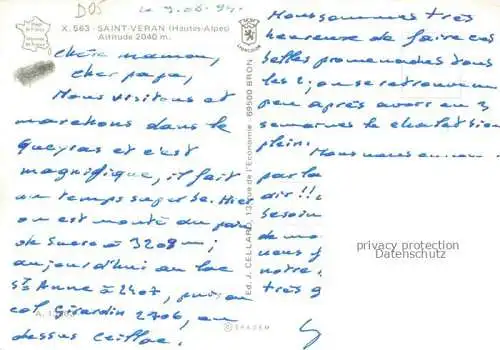 DOS
le 9.08.94.
X. 563 - SAINT-VERAN (Hautes-Alpes)
Altitude 2040 m.
Chère maman,
cher papa,
Nous visitons et
marchons dans le
Queyras et c'est
magnifique, il fait
un temps superbe. Hier
on est monté du pain
de sucre à 3208 m;
aujourd'hui au lac
Ste Anne à 2407, puis au
col Girardin 2706, au
dessus Ceillac.
Nous sommes très
heureuse de faire ces
belles promenades tous
les 2; on se retrouve un
peu après avoir eu 3
semaines le chalet si
plein.
Nous nous
par la
dir!!
besoin
de
vous
notre
très
Ed. J. CELLARD, 13, rue de l'Economie 69500 BRON
© SPADEM
privacy protection
Datenschutz